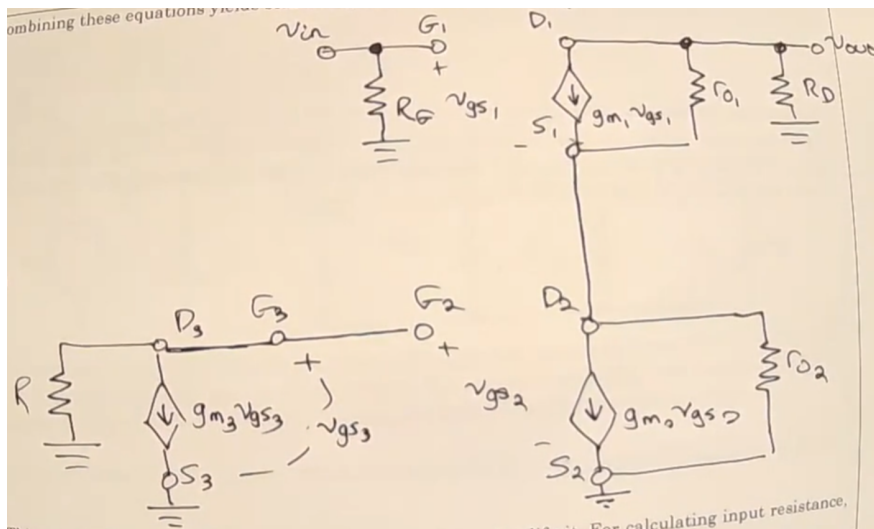 ombining these equations yields
Vin G1 D1 Vout
+
RG Vgs1 gm1 Vgs1 ro1 RD
- S1
D3 G3 G2 D2
+ +
R gm3 Vgs3 Vgs3 Vgs2 gm2 Vgs2 ro2
S3 - - S2
For calculating input resistance,